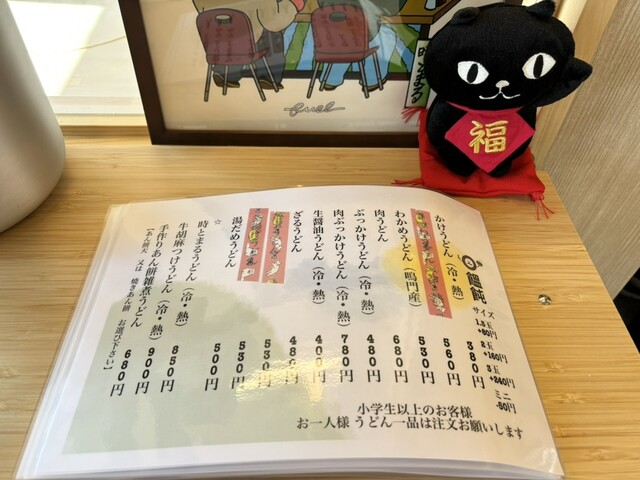 福
饂飩
サイズ
1.5玉
+80円
2玉
+160円
3玉
+240円
ミニ
-50円
かけうどん（冷・熱）
380円
560円
わかめうどん（鳴門産）
530円
肉うどん
680円
ぶっかけうどん（冷・熱）
480円
肉ぶっかけうどん（冷・熱）
780円
生醤油うどん（冷・熱）
ざるうどん
480円
530円
530円
湯だめうどん
500円
☆
時とまるうどん（冷・熱）
850円
牛胡麻つけうどん（冷・熱）
900円
手作りあん餅雑煮うどん
680円
【あん餅天 又は 焼きあん餅 お選び下さい】
小学生以上のお客様
お一人様 うどん一品は注文お願いします